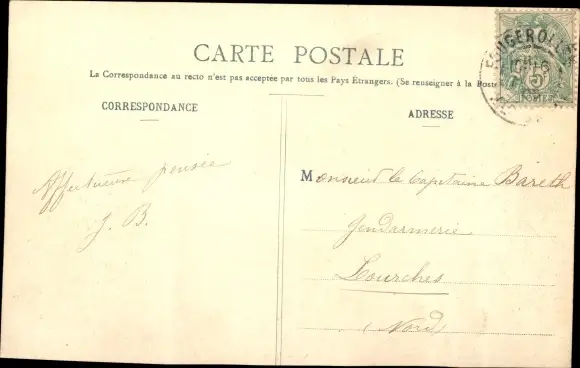 CARTE POSTALE
La Correspondance au recto n'est pas acceptée par tous les Pays Étrangers. (Se renseigner à la Poste
CORRESPONDANCE
ADRESSE
Affectueuse pensée
J. B.
Monsieur le Capitaine Bareth
Gendarmerie
Lourches
(Nord)
FOUGEROLLES
5
POSTES